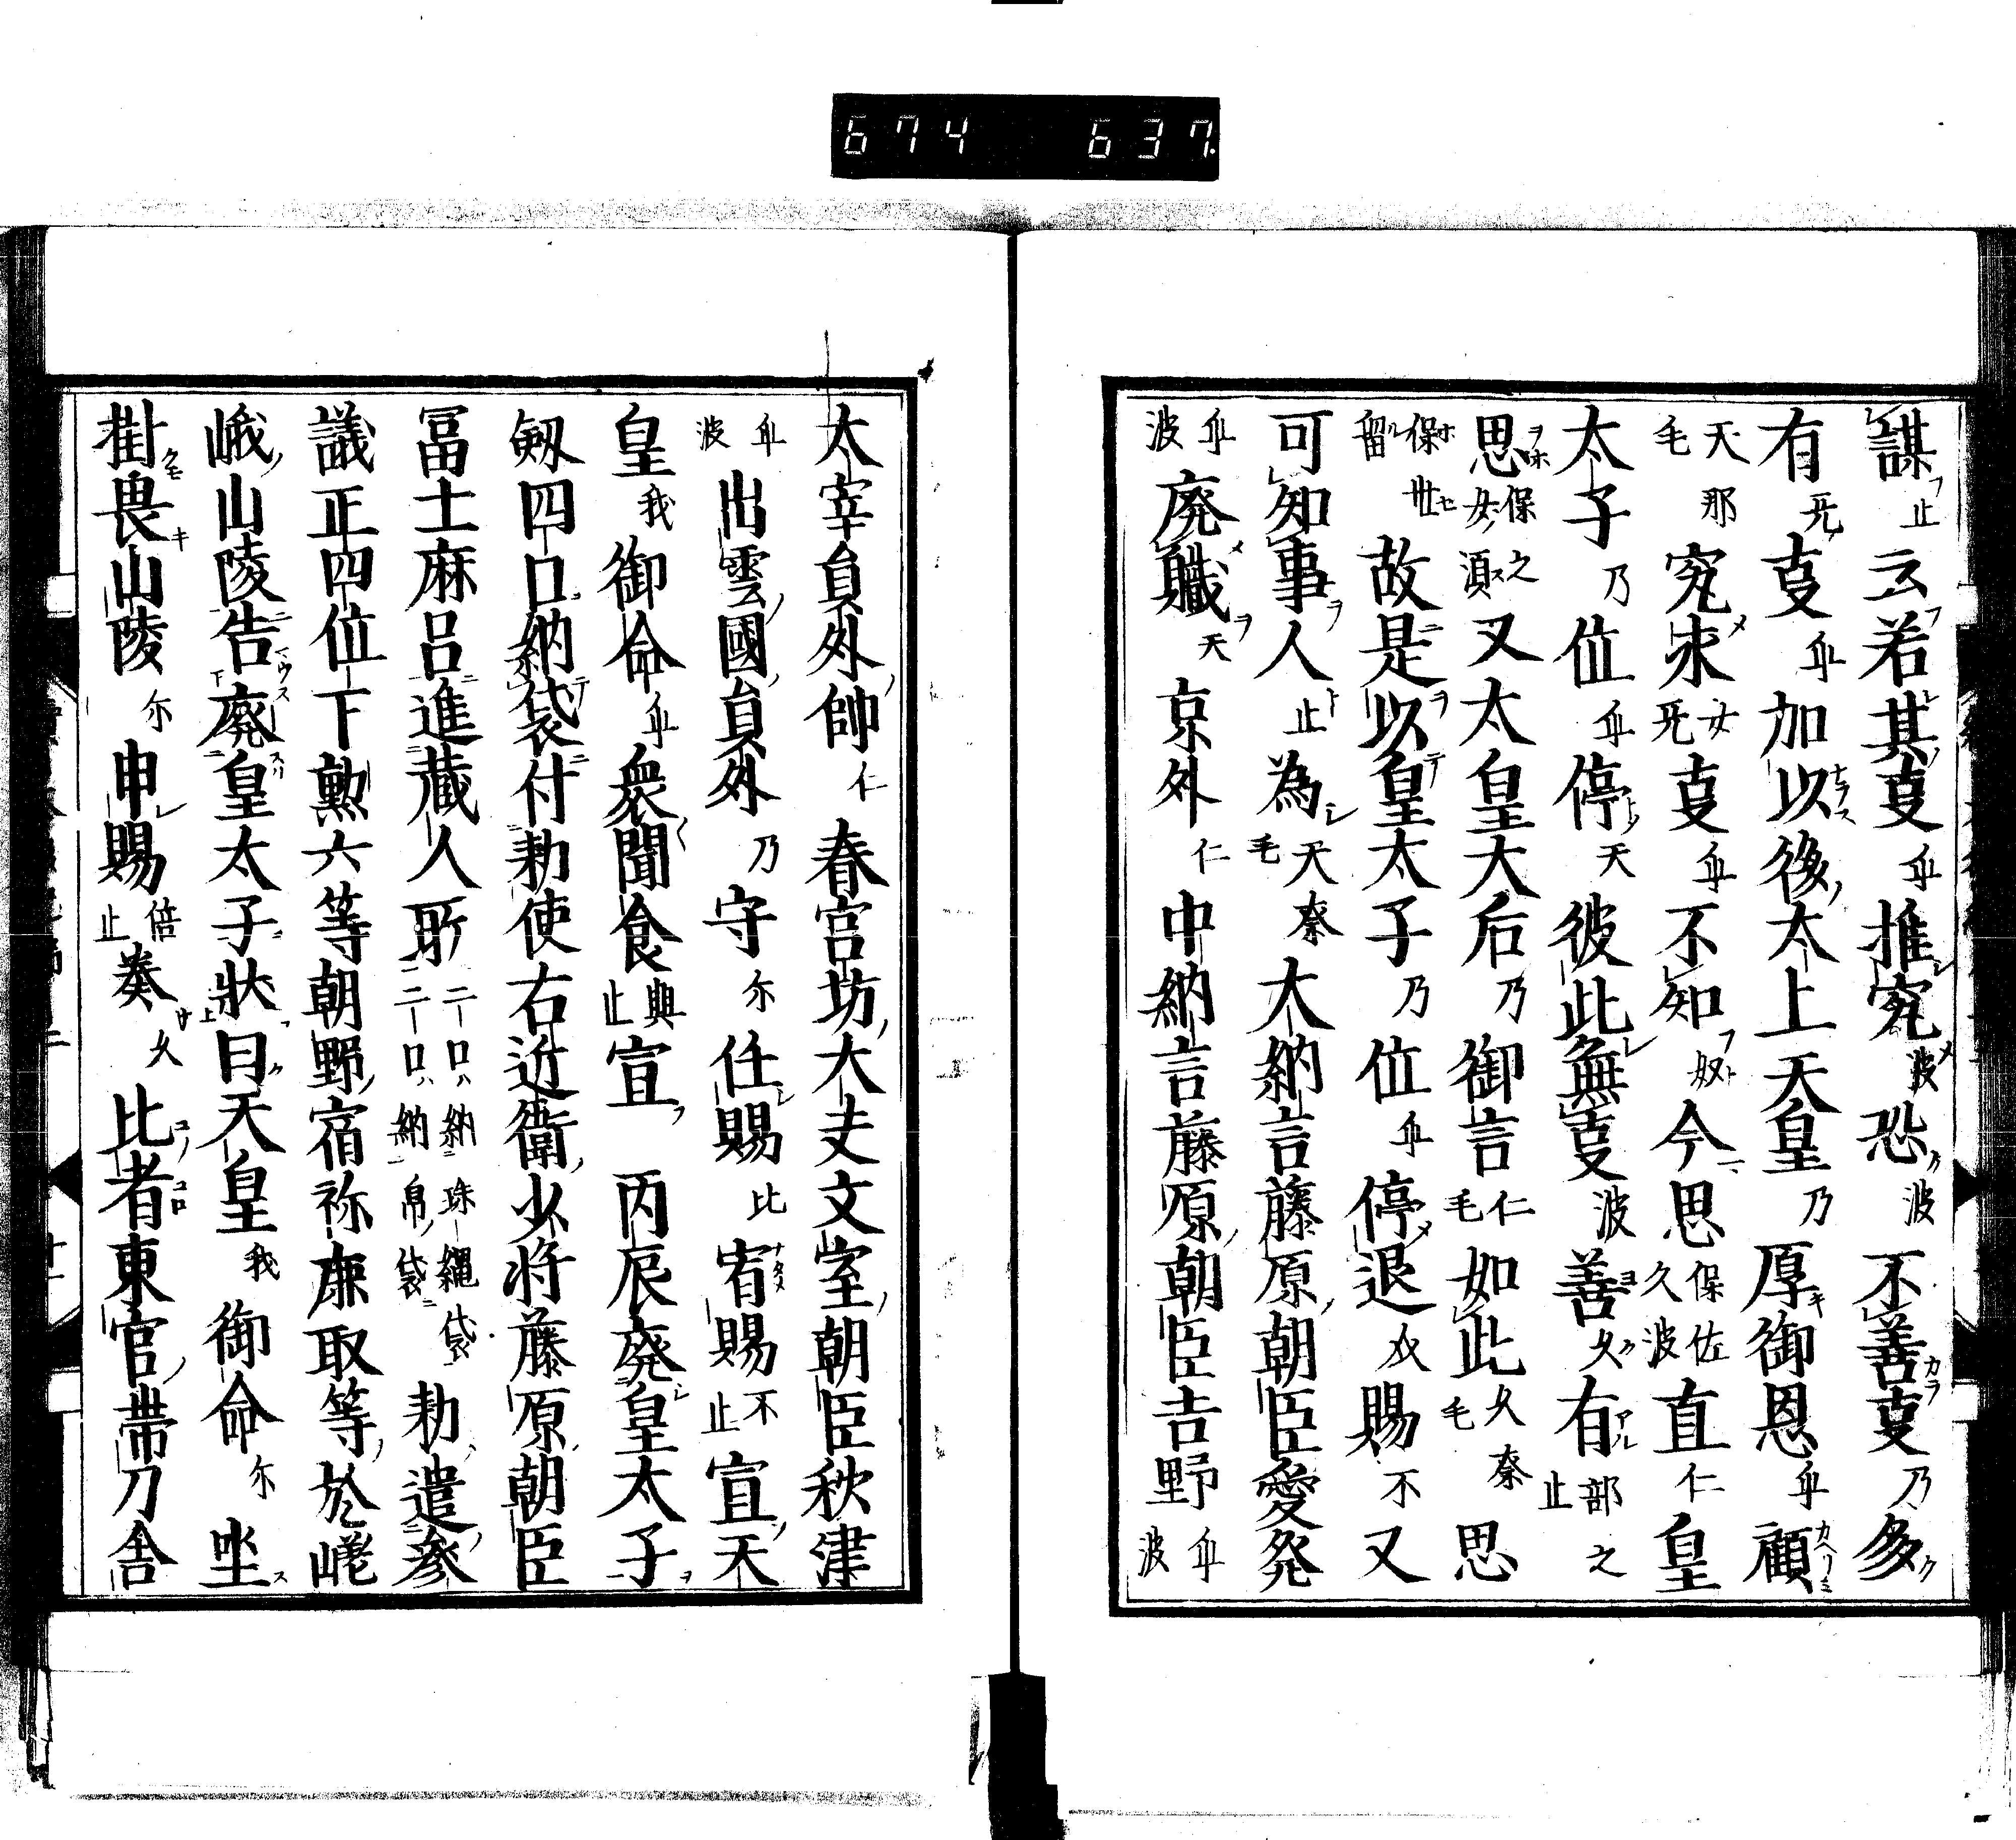 674 637
謀止云若其叓乎推究波恐波不善叓乃多
有死叓乎加以後太上天皇乃厚御恩乎顧
天毛那究求女死叓乎不知奴今思保佐久波直仁皇
太子乃位乎停天彼此無叓波善久有部之止
思保女之湏又太皇大后乃御言仁毛如此久毛奈思
保世留故是以皇太子乃位乎停退㕝賜不又
可知事人止為天毛奈大納言藤原朝臣愛発
乎波廃職天京外仁中納言藤原朝臣吉野乎波
太宰員外帥仁春宮坊大夫文室朝臣秋津
乎波出雲國員外乃守尓任賜比宥賜不止宣天
皇我御命乎衆聞食與止宣丙辰廃皇太子
剱四口納袋付勅使右近衛少将藤原朝臣
冨士麻呂進蔵人所二口納珠縄袋二口納帛袋勅遣参
議正四位下勲六等朝野宿祢鹿取等於嵯
峨山陵告廃皇太子状曰天皇我御命尓坐
掛畏山陵尓申賜倍止奏久比者東官帯刀舎